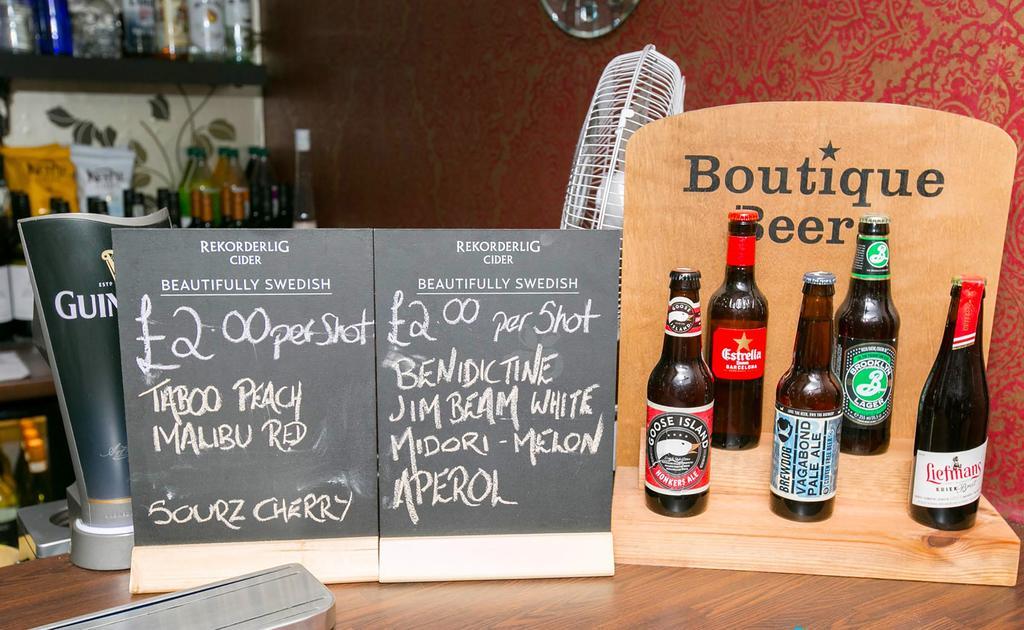 GUIN
REKORDERLIG
CIDER
BEAUTIFULLY SWEDISH
£2.00 per Shot
TABOO PEACH
MALIBU RED
SOURZ CHERRY
REKORDERLIG
CIDER
BEAUTIFULLY SWEDISH
£2.00 per Shot
BENIDICTINE
JIM BEAM WHITE
MIDORI - MELON
APEROL
Boutique
Beer
GOOSE
ISLAND
GOOSE ISLAND
HONKERS ALE
Estrella
Damm
BARCELONA
BREWDOG
VAGABOND
PALE ALE
BROOKLYN
LAGER
Liefmans
KRIEK Brut